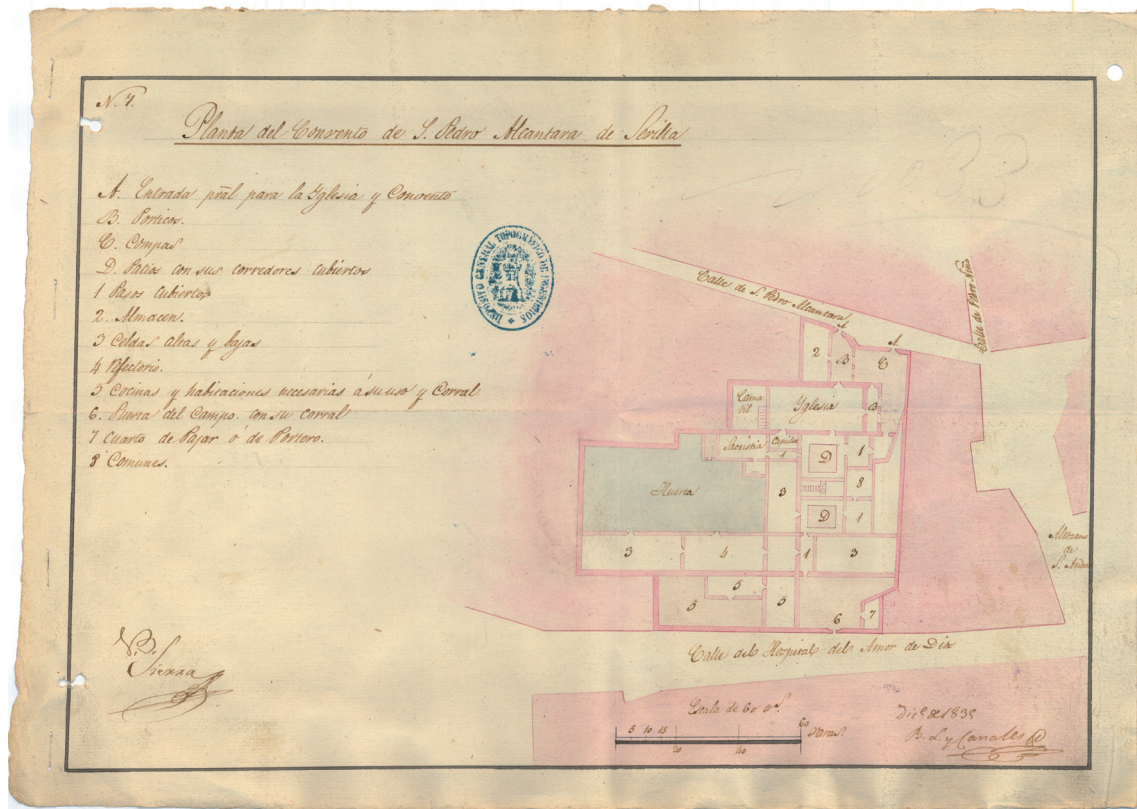 N. 7.
Planta del Convento de S. Pedro Alcantara de Sevilla
A. Entrada pral para la Yglesia y Convento
B. Porticos.
C. Compas
D. Patios con sus corredores cubiertos
1 Pasos Cubiertos
2. Almacen.
3 Celdas altas y bajas
4 Refectorio.
5 Cocinas y habitaciones necesarias á su uso y Corral
6. Puerta del Campo con su corral
7 Cuarto de Pajar ó de Portero.
8 Comunes.
DEPOSITO GENERAL TOPOGRAFICO DE INGENIEROS
Calle de S. Pedro Alcantara
A
A
2
B
C
Yglesia
B
Sacristia
Capilla
1
D
1
Huerta
3
8
D
1
3
4
1
3
5
5
5
6
7
de
S. Andres
Calle del Hospital del Amor de Dios
V. B.
Sierra
Escala de 60 vs.
5 10 15
20
40
60
Varas.
Dice. de 1835
B. L. y Canales